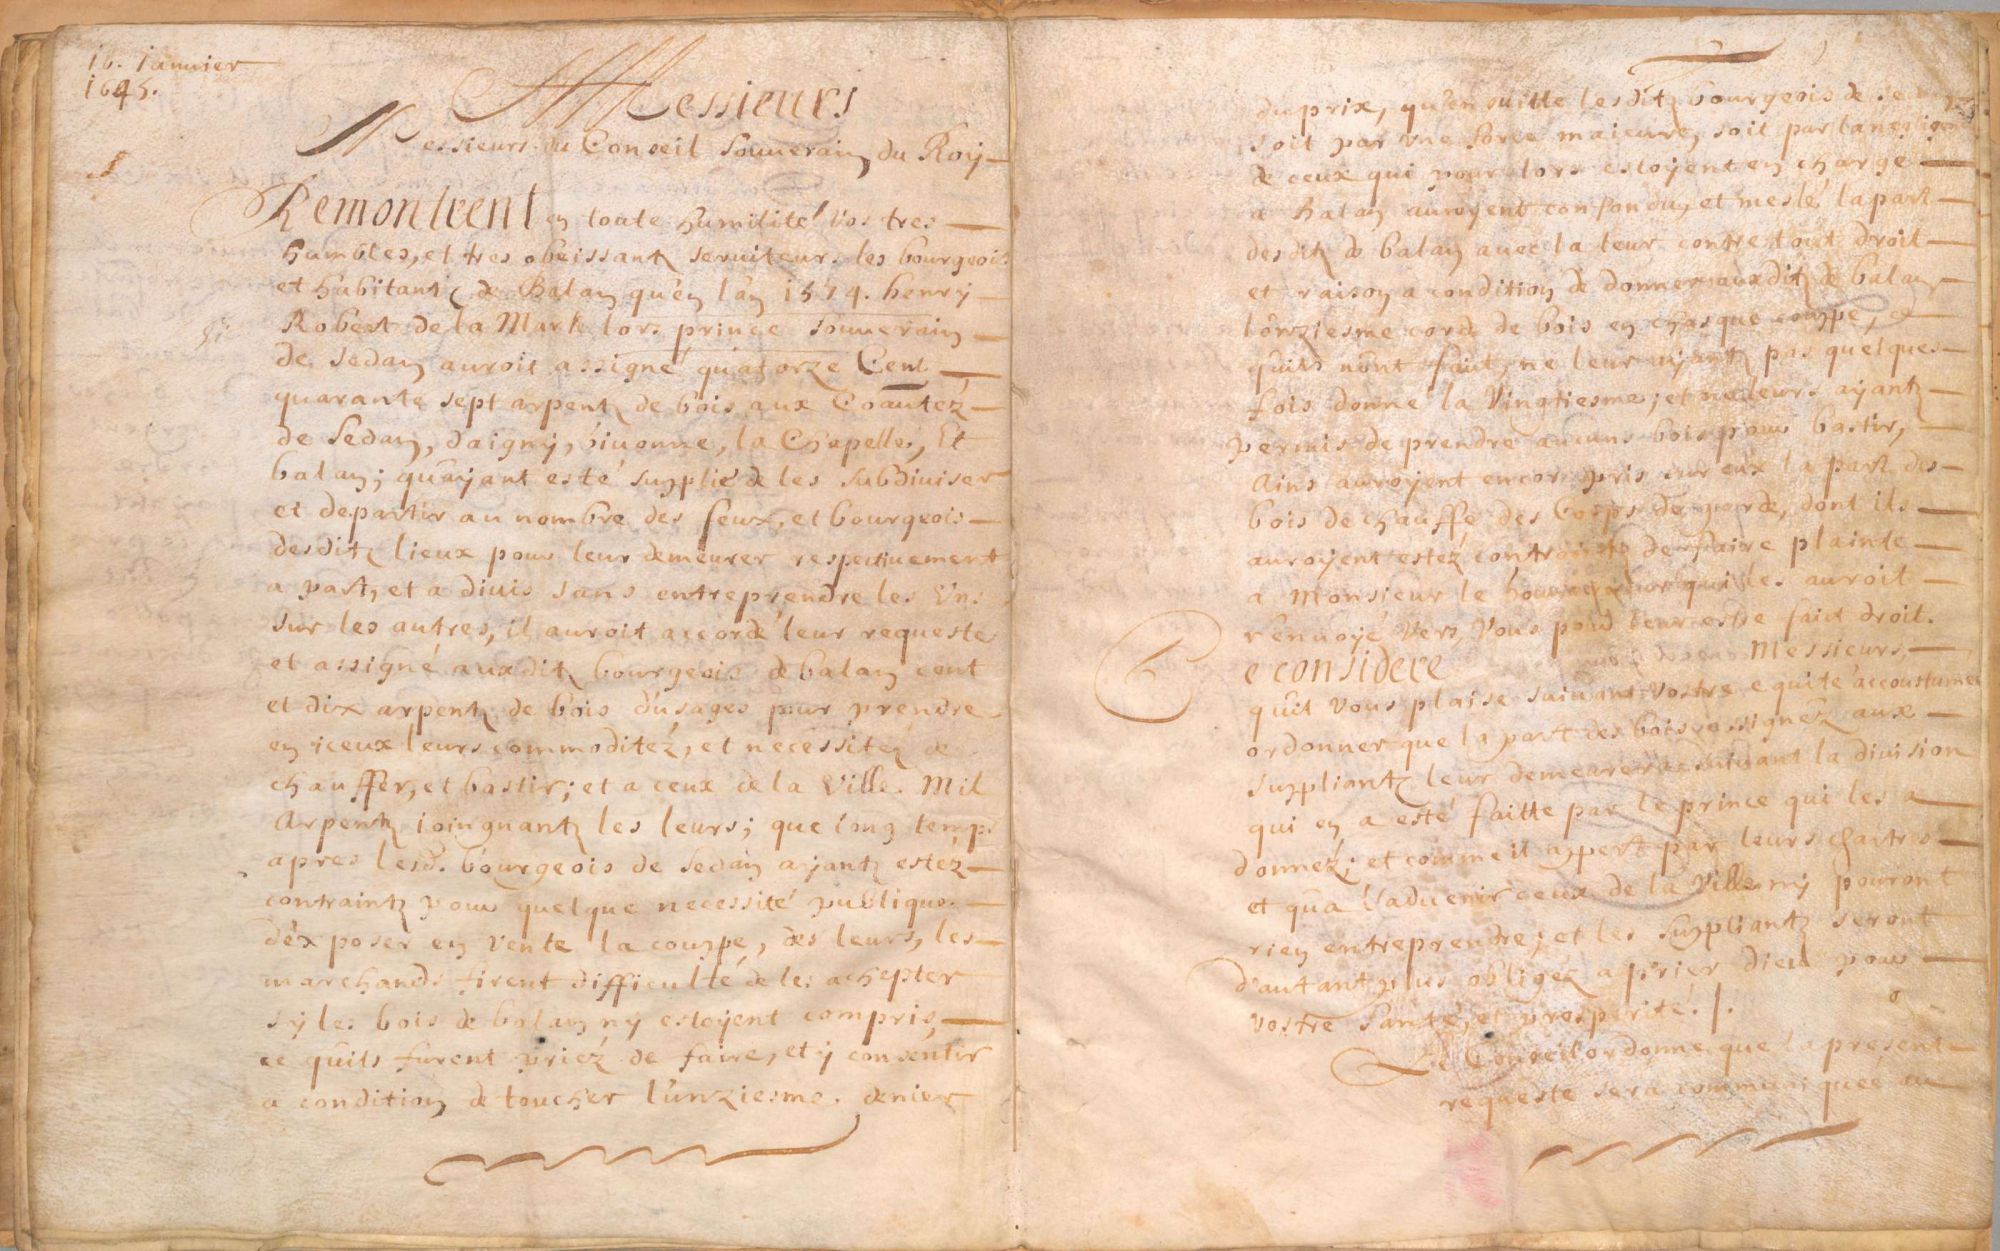 16. Ianuier
1645.
Messieurs
Messieurs du Conseil Souuerain du Roy
Remontrent en toute humilité Vos tres
humbles, et tres obeissantz seruiteurs les bourgeois
et habitantz de Balan qu'en l'an 1574. henry
Robert de la Mark lors prince souuerain
de Sedan auroit assigné quatorze Cent
quarante sept arpentz de bois aux Coāutéz
de Sedan, daigny, Giuonne, la Chapelle, Et
balan; qu'ayant esté supplié de les subdiuiser
et departir au nombre des feux, et bourgeois
desditz lieux pour leur demeurer respectiuement
a part, et a diuis sans entreprendre les Vns
sur les autres, il auroit accordé leur requeste
et assigné auxditz bourgeois de balan cent
et dix arpentz de bois d'usages pour prendre
en iceux leurs commoditéz, et necessitez de
chauffer, et bastir; et a ceux de la Ville. Mil
Arpentz ioingnantz les leurs; que long temps
apres lesd. bourgeois de Sedan ayantz estéz
contraintz pour quelque necessité publique.
d'exposer en Vente la couppe, des leurs, les
marchands firent difficulté de les achepter
sy les bois de balan ny estoyent compris,
ce quils furent priéz de faire, et y consentir
a condition de toucher l'unziesme. denier
du prix, qu'en suitte lesditz bourgeois de Sedan
soit par Vne force maieure, soit par la negligence
de ceux qui pour lors estoyent en charge
a Balan auroyent confondu, et meslé la part
desditz de balan auec la leur contre tout droit
et raison a condition de donner auxditz de balan
l'onziesme corde de bois en chasque couppe, ce
quils n'ont fait, ne leur ayantz pas quelques
fois donné la Vingtiesme; et ne leurs ayantz
permis de prendre aucuns bois pour bastir,
Ains auroyent encor pris sur eux la part des
bois de chauffe des Corps de garde, dont ils
auroyent estéz contraintz de faire plainte
a Monsieur le Gouuerneur qui les auroit
renuoyé Vers Vous pour leur estre fait droit.
Ce considere Messieurs,
quil Vous plaise suiuant Vostre equité accoustumée
ordonner que la part des bois assignéz aux
suppliantz leur demeurera suiuant la diuision
qui en a esté faitte par le prince qui les a
donnéz; et comme il appert par leurs chartres
et qu'a l'aduenir ceux de la Ville ny pouront
rien entreprendre; et les suppliantz seront
d'autant plus obligéz a prier dieu pour
vostre santé, et prosperité./.
Le Conseil ordonne que la presente
requeste sera communiquée au